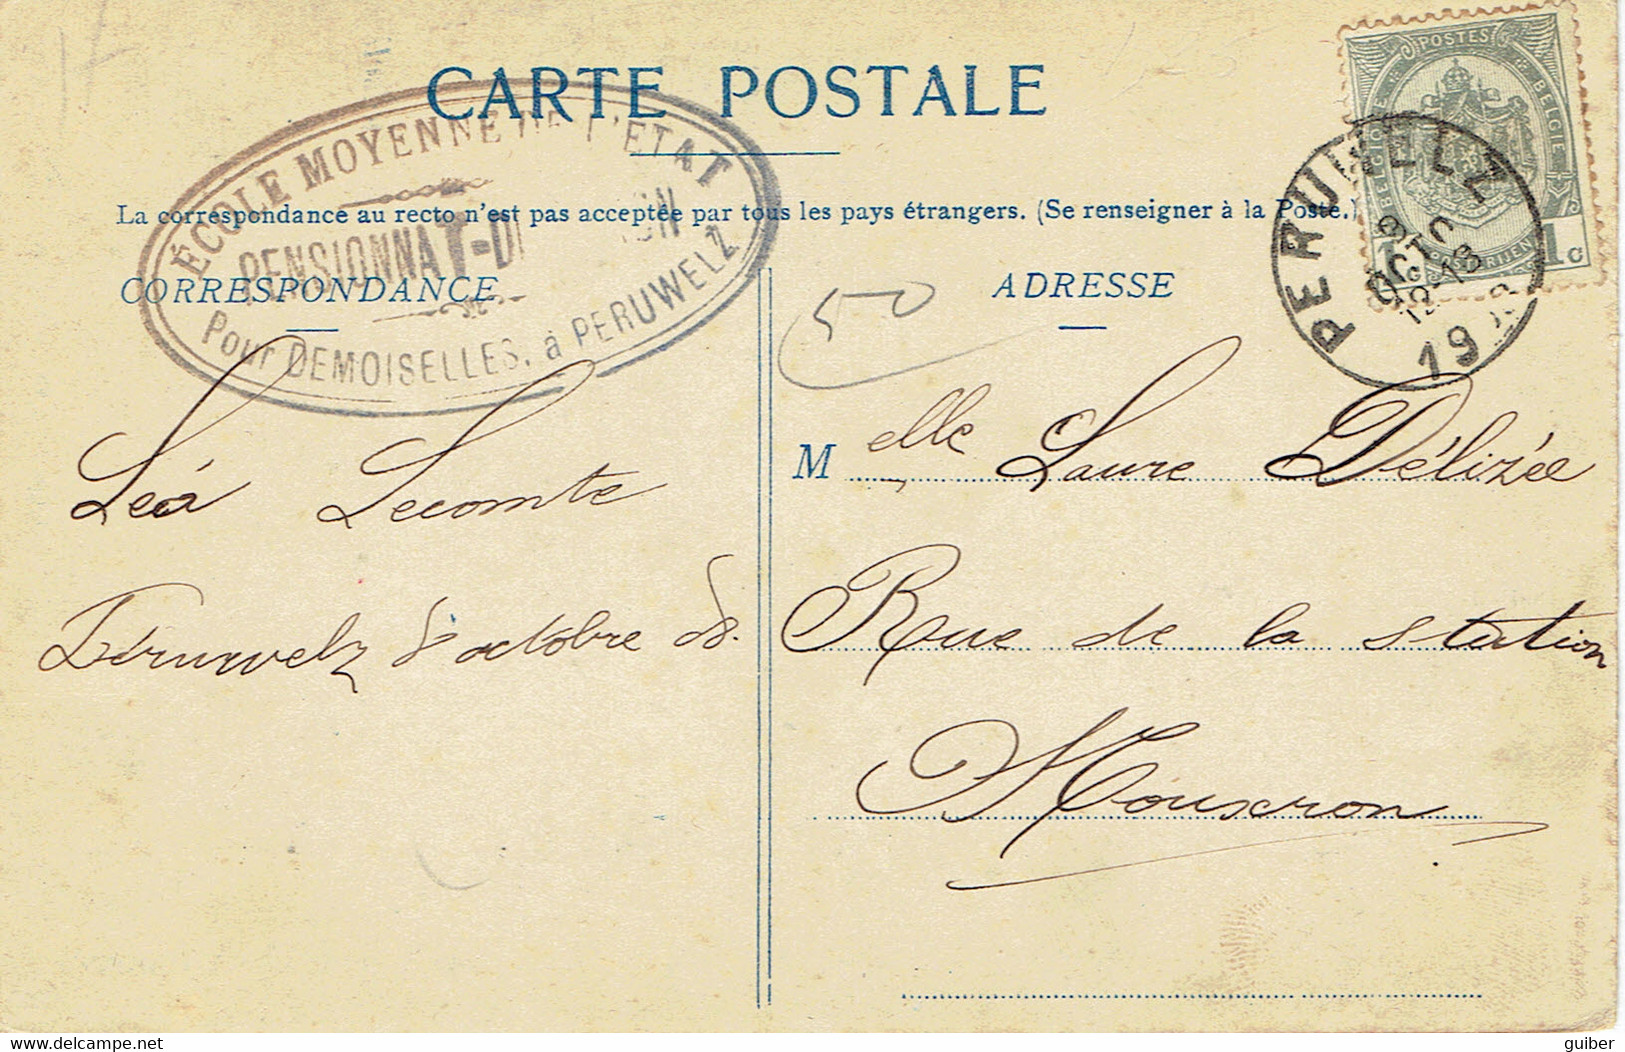 CARTE POSTALE
ÉCOLE MOYENNE DE L'ETAT
PENSIONNAT-D
Pour DEMOISELLES, à PERUWELZ
La correspondance au recto n'est pas acceptée par tous les pays étrangers. (Se renseigner à la Poste.)
CORRESPONDANCE
ADRESSE
POSTES
BELGIQUE
BELGIË
POSTERIJEN
1 c
PERUWELZ
OCTO
12-13
19
50
Léa Lecomte
Péruwelz 8 octobre 08.
Melle Laure Délizée
Rue de la station
Mouscron
guiber